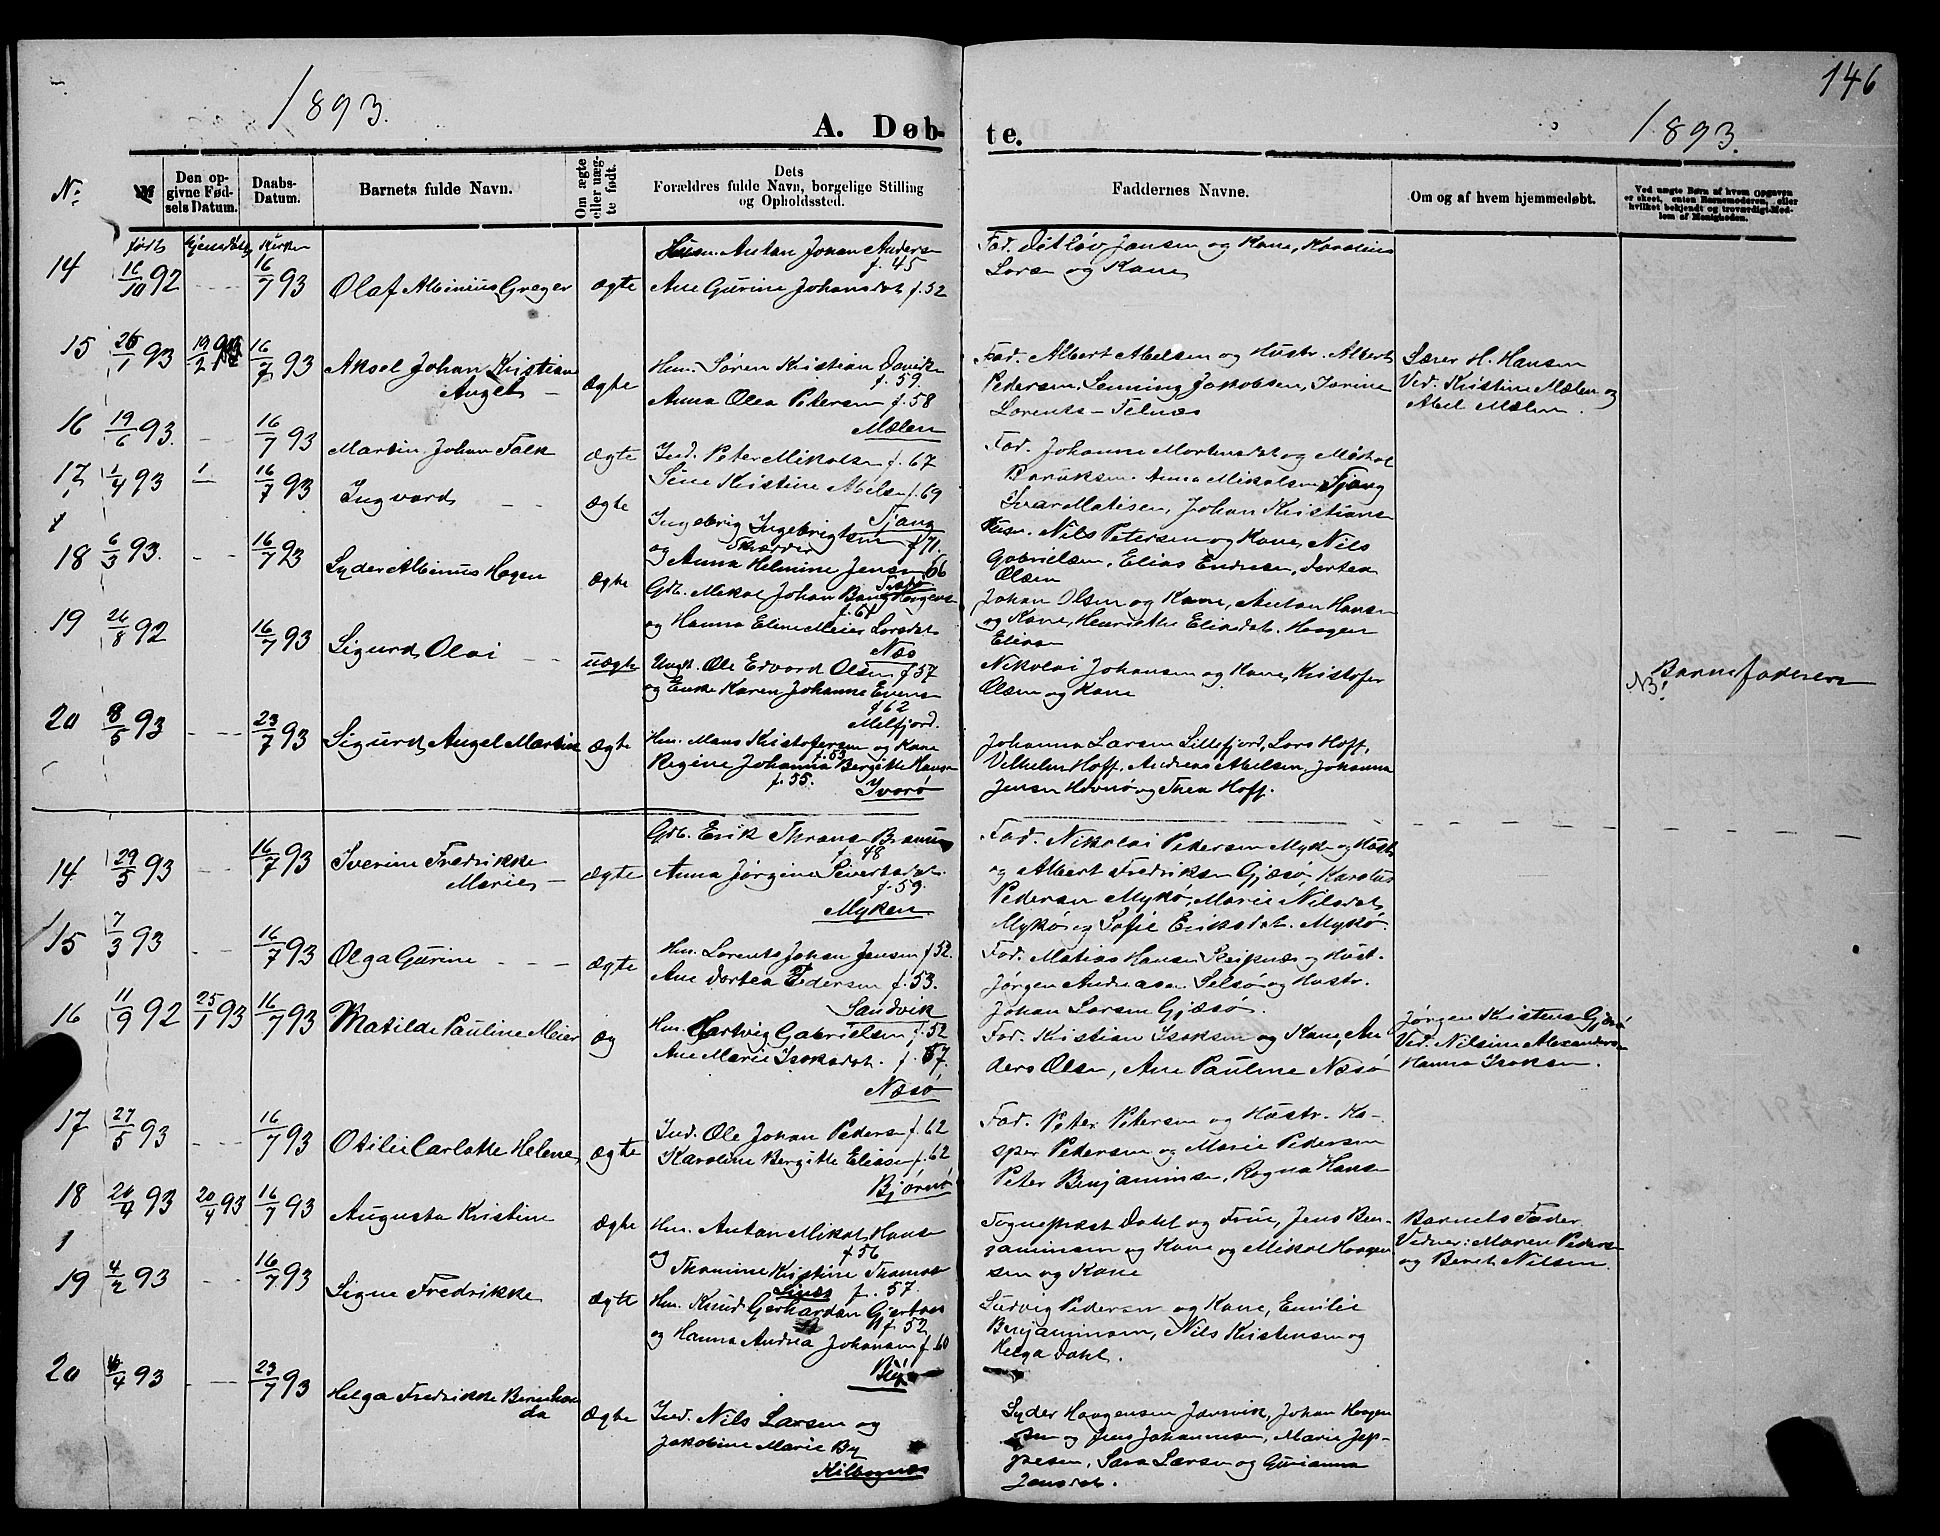 146
1893.
1893.
A. Døb-
te.
№
Den op-
givne Fød-
sels Datum.
Daabs-
Datum.
Barnets fulde Navn.
Om ægte
eller uæg-
te født.
Dets
Forældres fulde Navn, borgelige Stilling
og Opholdssted.
Faddernes Navne.
Om og af hvem hjemmedøbt.
Ved uægte Børn af hvem Opgaven
er skeet, enten Barnemoderen, eller
hvilket bekjendt og troværdigt Med-
lem af Menigheden.
født Hjemdøbt Kirken
14 16/10 92 16/7 93 Olaf Albinius Greger ægte
Husm. Antan Johan Anders
f. 45
Ane Gurine Johansdat f. 52
Fad. Ditløv Jensen og Kone, Karolius
Loræ og Kone
15 26/1 93 19/2 93 16/7 93 Aksel Johan Kristian
Angel - ægte
Hm. Søren Kristian Danik
f. 59.
Anna Olea Petersen f. 58
Mælen
Fad. Albert Abelsen og Hustr. Albert
Pedersen, Henning Jakobsen, Janine
Lorents - Telnæs
Lærer H. Hansen
Ved. Kristine Mælen og
Abel Mælen.
16 19/6 93. 16/7 93 Martin Johan Falk ægte
Ind. Peter Mikalsen f. 67
Sine Kristine Abelsen f. 69
Tjong
Fad. Johanne Mortensdat og Mikal
Baruksen. Anna Mikalsen Tjong
17 1/4 93 16/7 93 Ingvard ægte
Ingebrig Ingebrigtsen f 71.
og Anna Helmine Jensen 66
Ivar Matisen, Johan Kristians
Husm. Nils Petersen og Kone, Nils
Gabrielsen, Elias Endresen, Dortea
Olsen
18 6/3 93. 16/7 93 Lyder Albinus Hagen ægte
Gdb. Mikal Johan Bang Haagens
f. 64
og Hanna Eline Meier Larsdat
Næs
Johan Olsen og Kone, Antan Hansen
og Kone, Henriette Eliasdat. Haagen
Elias
19 26/8 92 16/7 93 Sigurd Olai uægte
Ungk. Ole Edvard Olsen f 57
og Enke Karen Johanne Evens
f 62
Melfjord.
Nikolai Johansen og Kone, Kristofer
Olsen og Kone
NB! Barnefaderen
20 8/5 93 23/7 93 Sigurd Angel Martin ægte
Hm. Mans Kristofersen og Kone
f. 53
Regine Johanna Bergitte Hans
f. 55. Ivarø
Johanna Larsen Lillefjord, Lars Hoff,
Vilhelm Hoff, Andreas Abelsen, Johanna
Jensen Hovnø og Thea Hoff.
14 29/5 93 16/7 93 Iverine Fredrikke
Marie - ægte
Gdb. Erik Thrana Bramus
f. 48
Anna Jørgine Sivertsdat.
f. 59.
Myken
Fad. Nikolai Pedersen Myke og Hust
og Albert Fredriksen Gjæsø, Karstus
Pedersen Mykø, Marie Nilsdat
Mykø og Sofie Eriksdat. Mykø.
15 7/3 93 16/7 93 Olga Gurine ægte
Hm. Lorents Johan Jensen f 52.
Ane Dortea Pedersen f. 53.
Sandvik
Fad. Matias Hansen Reipnæs og Hust.
Jørgen Andreasen Selsø og Hustr.
Johan Larsen Gjæsø.
16 11/9 92 25/1 93 16/7 93 Matilde Pauline Meier æg
Hm. Hartvig Gabrielsen f 52
Ane Marie Isaksdat. f. 57.
Næsø
Fad. Kristian Isaksen og Kone, An
ders Olsen, Ane Pauline Næsø
Jørgen Kristens Gjæsø
Ved. Nilsine Alexanders
Hanna Isaksen.
17 27/5 93 16/7 93 Otilie Carlotte Helene ægte
Ind. Ole Johan Peders f. 62
Karoline Bergitte Elias f. 62
Bjørnø
Fad. Peter Petersen og Hustr. Ka-
sper Pedersen og Marie Pedersen
Peter Benjaminsen, Ragna Hans
18 20/4 93 20/4 93 16/7 93 Augusta Kristine ægte
Hm. Antan Mikal Hans
f 56
og Thomine Kristine Thomas
f. 57.
Sognepræst Dahl og Frue, Jens Ben-
jaminsen og Kone og Mikal Haagen
sen og Kone
Barnets Fader
Vidner: Maren Peders
og Beret Nilsen.
19 4/2 93 16/7 93 Signe Fredrikke ægte
Hm. Knud Gerhardan Gjertsen
f. 52
og Hanna Andrea Johansen f. 60
Ludvig Pedersen og Kone, Emilie
Benjaminsen, Nils Kristensen og
Helga Dahl.
20 4/4 93 23/7 93 Helga Fredrikke Bernhar
da ægte
Ind. Nils Larsen og
Jakobine Marie By
Kilbognæs
Lyder Haagensen Jansvik, Johan Haagen
sen og Jens Johannesen, Marie Jep-
pesen, Sara Larsen og Gurianna
Jensdat.